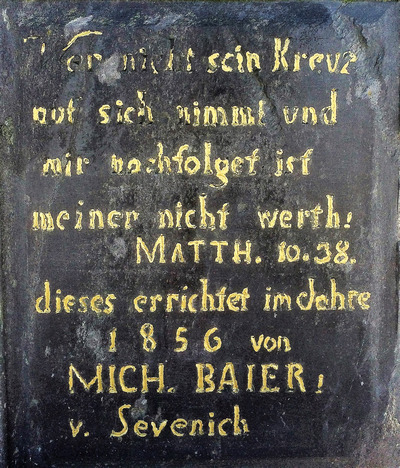 Wer nicht sein Kreuz
auf sich nimmt und
mir nachfolget ist
meiner nicht werth!
MATTH. 10.38.
dieses errichtet im Jahre
1856 von
MICH. BAIER!
v. Sevenich